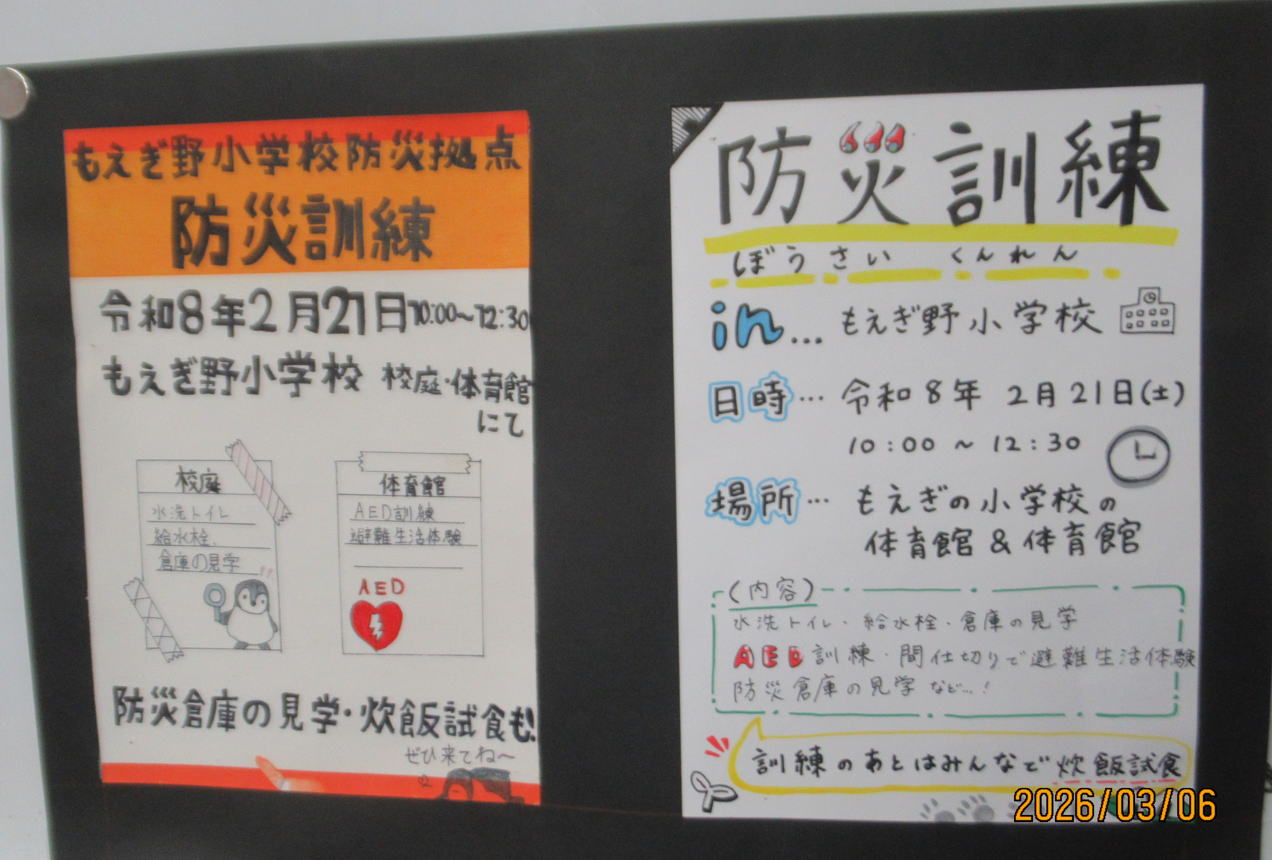 もえぎ野小学校防災拠点
防災訓練
令和8年2月21日10:00~12:30
もえぎ野小学校 校庭・体育館
にて
校庭
水洗トイレ
給水栓.
倉庫の見学
体育館
AED訓練
避難生活体験
AED
防災倉庫の見学・炊飯試食も!
ぜひ来てね~
防災訓練
ぼうさい くんれん
in... もえぎ野小学校
日時… 令和8年 2月21日(土)
10:00 ~ 12:30
場所… もえぎの小学校の
体育館&体育館
(内容)
水洗トイレ・給水栓・倉庫の見学
AED訓練・間仕切りで避難生活体験
防災倉庫の見学 など…!
訓練のあとはみんなで炊飯試食
2026/03/06